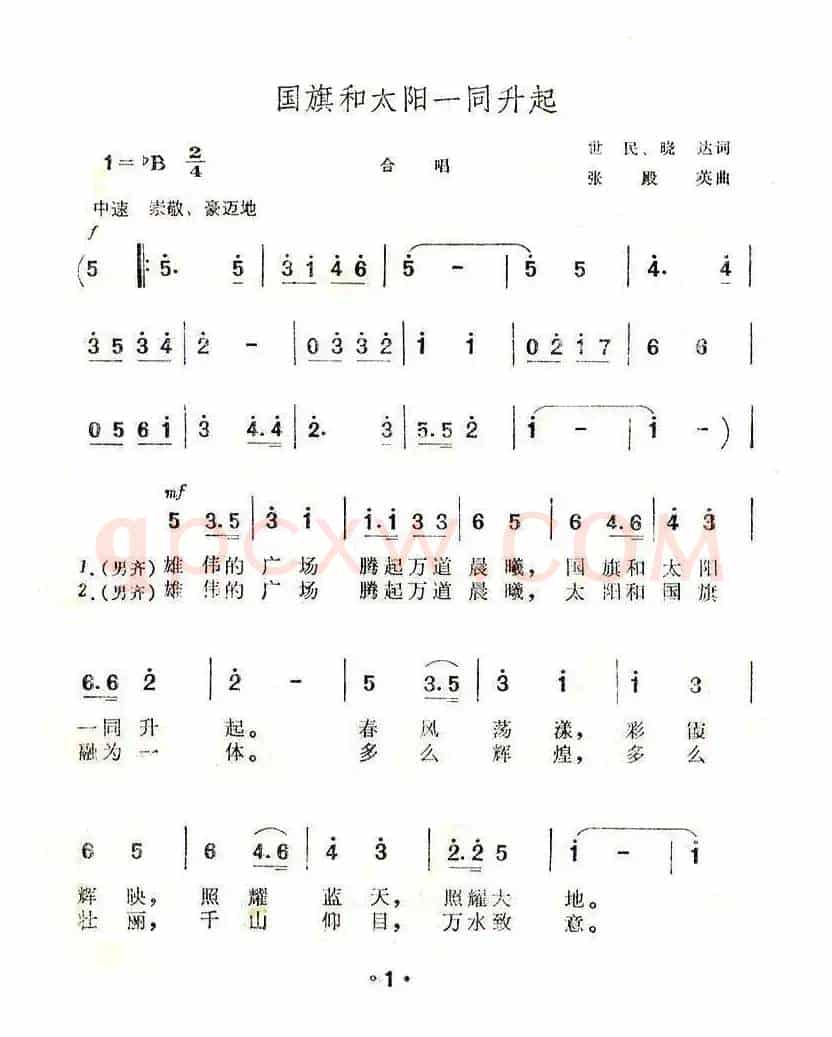 国旗和太阳一同升起
1=♭B 2/4
合 唱
世 民、晓 达词
张 殿 英曲
中速 崇敬、豪迈地
f
(5 ‖: 5̇. 5̇ | 3̇ 1̇ 4̇ 6̇ | 5̇ - | 5̇ 5 | 4̇. 4̇ |
3̇ 5 3̇ 4̇ | 2̇ - | 0 3̇ 3̇ 2̇ | 1̇ 1̇ | 0 2̇ 1̇ 7 | 6 6 |
0 5 6 1̇ | 3̇ 4̇.4̇ | 2̇. 3̇ | 5.5 2̇ | 1̇ - | 1̇ -) |
mf
5 3.5 | 3̇ 1̇ | 1̇.1̇ 3̇ 3̇ | 6 5 | 6 4.6 | 4̇ 3̇ |
1.(男齐)雄 伟的 广 场 腾起万道 晨 曦, 国 旗和 太 阳
2.(男齐)雄 伟的 广 场 腾起万道 晨 曦, 太 阳和 国 旗
6.6 2̇ | 2̇ - | 5 3.5 | 3̇ 1̇ | 1̇ 3̇ |
一同 升 起。 春 风 荡 漾, 彩 霞
融为 一 体。 多 么 辉 煌, 多 么
6 5 | 6 4.6 | 4̇ 3̇ | 2̇.2̇ 5 | 1̇ - | 1̇
辉 映, 照 耀 蓝 天, 照耀大 地。
壮 丽, 千 山 仰 目, 万水致 意。
1